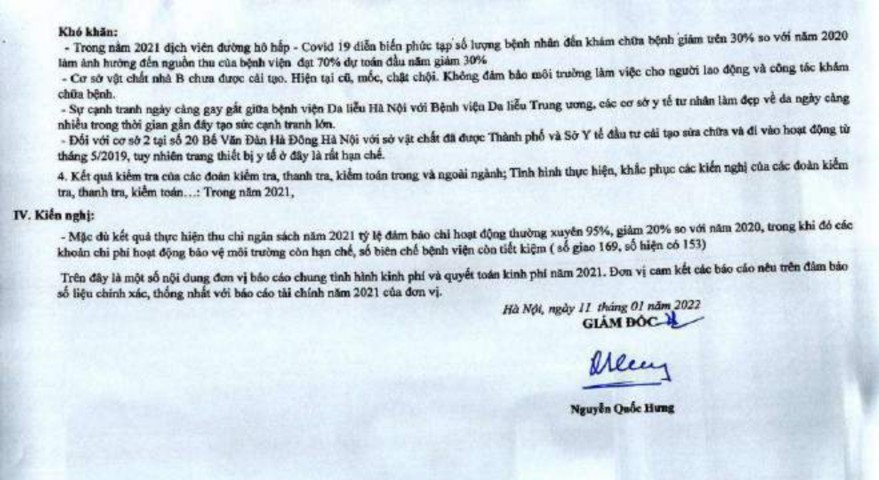 Khó khăn:
- Trong năm 2021 dịch viên đường hô hấp - Covid 19 diễn biến phức tạp số lượng bệnh nhân đến khám chữa bệnh giảm trên 30% so với năm 2020
làm ảnh hưởng đến nguồn thu của bệnh viện đạt 70% dự toán đầu năm giảm 30%
- Cơ sở vật chất nhà B chưa được cải tạo. Hiện tại cũ, mốc, chật chội. Không đảm bảo môi trường làm việc cho người lao động và công tác khám
chữa bệnh.
- Sự cạnh tranh ngày càng gay gắt giữa bệnh viện Da liễu Hà Nội với Bệnh viện Da liễu Trung ương, các cơ sở y tế tư nhân làm đẹp về da ngày càng
nhiều trong thời gian gần đây tạo sức cạnh tranh lớn.
- Đối với cơ sở 2 tại số 20 Bế Văn Đàn Hà Đông Hà Nội với sở vật chất đã được Thành phố và Sở Y tế đầu tư cải tạo sửa chữa và đi vào hoạt động từ
tháng 5/2019, tuy nhiên trang thiết bị y tế ở đây là rất hạn chế.
4. Kết quả kiểm tra của các đoàn kiểm tra, thanh tra, kiểm toán trong và ngoài ngành; Tình hình thực hiện, khắc phục các kiến nghị của các đoàn kiểm
tra, thanh tra, kiểm toán...: Trong năm 2021,
IV. Kiến nghị:
- Mặc dù kết quả thực hiện thu chi ngân sách năm 2021 tỷ lệ đảm bảo chi hoạt động thường xuyên 95%, giảm 20% so với năm 2020, trong khi đó các
khoản chi phí hoạt động bảo vệ môi trường còn hạn chế, số biên chế bệnh viện còn tiết kiệm ( số giao 169, số hiện có 153)
Trên đây là một số nội dung đơn vị báo cáo chung tình hình kinh phí và quyết toán kinh phí năm 2021. Đơn vị cam kết các báo cáo nêu trên đảm bảo
số liệu chính xác, thống nhất với báo cáo tài chính năm 2021 của đơn vị.
Hà Nội, ngày 11 tháng 01 năm 2022
GIÁM ĐỐC
Nguyễn Quốc Hưng